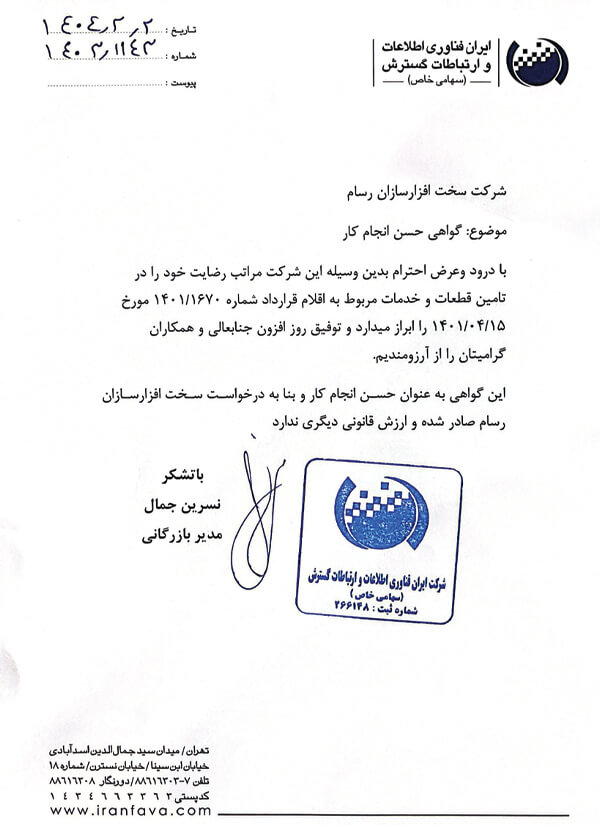 ایران فناوری اطلاعات
و ارتباطات گسترش
(سهامی خاص)
تاریخ : ۱۴۰۴٫۲٫۲
شماره : ۱۴۰۳٫۱۱۴۳
پیوست :
شرکت سخت افزارسازان رسام
موضوع: گواهی حسن انجام کار
با درود وعرض احترام بدین وسیله این شرکت مراتب رضایت خود را در
تامین قطعات و خدمات مربوط به اقلام قرارداد شماره ۱۴۰۱/۱۶۷۰ مورخ
۱۴۰۱/۰۴/۱۵ را ابراز میدارد و توفیق روز افزون جنابعالی و همکاران
گرامیتان را از آرزومندیم.
این گواهی به عنوان حسن انجام کار و بنا به درخواست سخت افزارسازان
رسام صادر شده و ارزش قانونی دیگری ندارد
باتشکر
نسرین جمال
مدیر بازرگانی
شرکت ایران فناوری اطلاعات و ارتباطات گسترش
(سهامی خاص)
شماره ثبت : ۲۶۶۱۴۸
تهران/ میدان سید جمال الدین اسدآبادی
خیابان ابن سینا / خیابان نسترن/ شماره ۱۸
تلفن ۷-۸۸۶۱۶۳۰۳/ دورنگار ۸۸۶۱۶۳۰۸
کدپستی ۱۴۳۴۶۶۳۳۶۳
www.iranfava.com